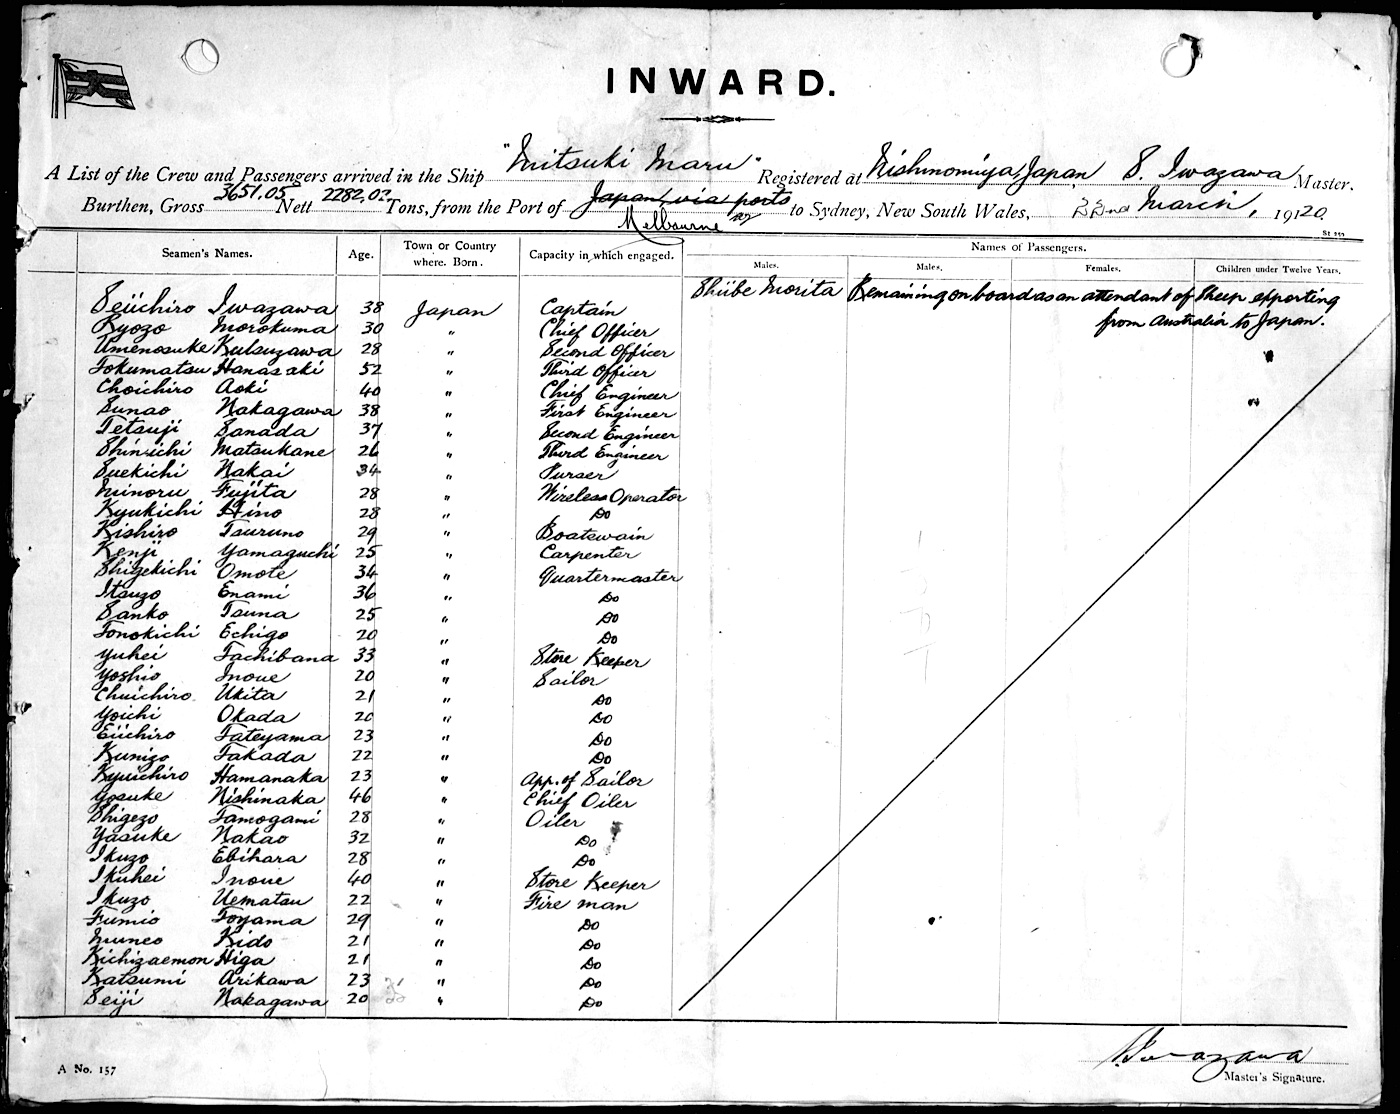 INWARD.
A List of the Crew and Passengers arrived in the Ship "Mitsuki Maru" Registered at Nishinomiya, Japan, S. Iwazawa Master.
Burthen, Gross 3651.05 Nett 2282.02 Tons, from the Port of Japan, via ports to Sydney, New South Wales, 22nd March, 19120
Melbourne
Seamen's Names. Age. Town or Country where Born. Capacity in which engaged. Names of Passengers.
Males. Males. Females. Children under Twelve Years.
Shiibe Morita Remaining on board as an attendant of Sheep epporting
from Australia to Japan.
Seiichiro Iwazawa 38 Japan Captain
Ryozo Morokuma 30 " Chief Officer
Umenosuke Kutsuzawa 28 " Second Officer
Tokumatsu Hanasaki 52 " Third Officer
Choichiro Aoki 40 " Chief Engineer
Sunao Nakagawa 38 " First Engineer
Tetsuji Sanada 37 " Second Engineer
Shin-ichi Matsukane 26 " Third Engineer
Suekichi Nakai 34 " Purser
Minoru Fujita 28 " Wireless Operator
Kyukichi Hino 28 " Do
Kishiro Tsuruno 29 " Boatswain
Kenji Yamaguchi 25 " Carpenter
Shigekichi Omote 34 " Quartermaster
Itsuzo Enami 36 " Do
Sanko Tsuna 25 " Do
Tonokichi Echigo 20 " Do
Yuhei Tachibana 33 " Store Keeper
Yoshio Inoue 20 " Sailor
Chuichiro Ukita 21 " Do
Yoichi Okada 20 " Do
Eiichiro Tateyama 23 " Do
Kunizo Takada 22 " Do
Kyuichiro Hamanaka 23 " App. of Sailor
Yosuke Nishinaka 46 " Chief Oiler
Shigezo Tamogami 28 " Oiler
Yasuke Nakao 32 " Do
Ikuzo Ebihara 28 " Do
Ikuhei Inoue 40 " Store Keeper
Ikuzo Uematsu 22 " Fire man
Fumio Toyama 29 " Do
Muneo Kido 21 " Do
Kichizaemon Higa 21 " Do
Katsumi Arikawa 23 " Do
Seiji Nakagawa 20 " Do
S. Iwazawa
A No. 157
Master's Signature.